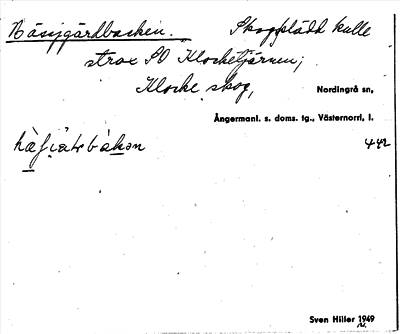 Håsjgårdbacken. Skogklädd kulle
strax SO Klocketjärnen;
Klocke skog, Nordingrå sn,
Ångermanl. s. doms. tg., Västernorrl, l.
442
Sven Hiller 1949